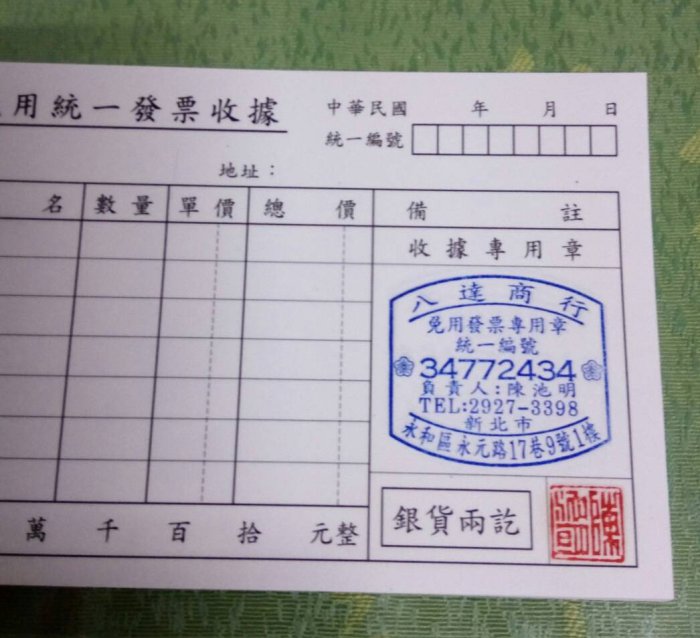 用統一發票收據
中華民國 年 月 日
統一編號
地址：
名 數量 單價 總價 備註
收據專用章
八達商行
免用發票專用章
統一編號
34772434
負責人：陳池明
TEL:2927-3398
新北市
永和區永元路17巷9號1樓
萬 千 百 拾 元整
銀貨兩訖